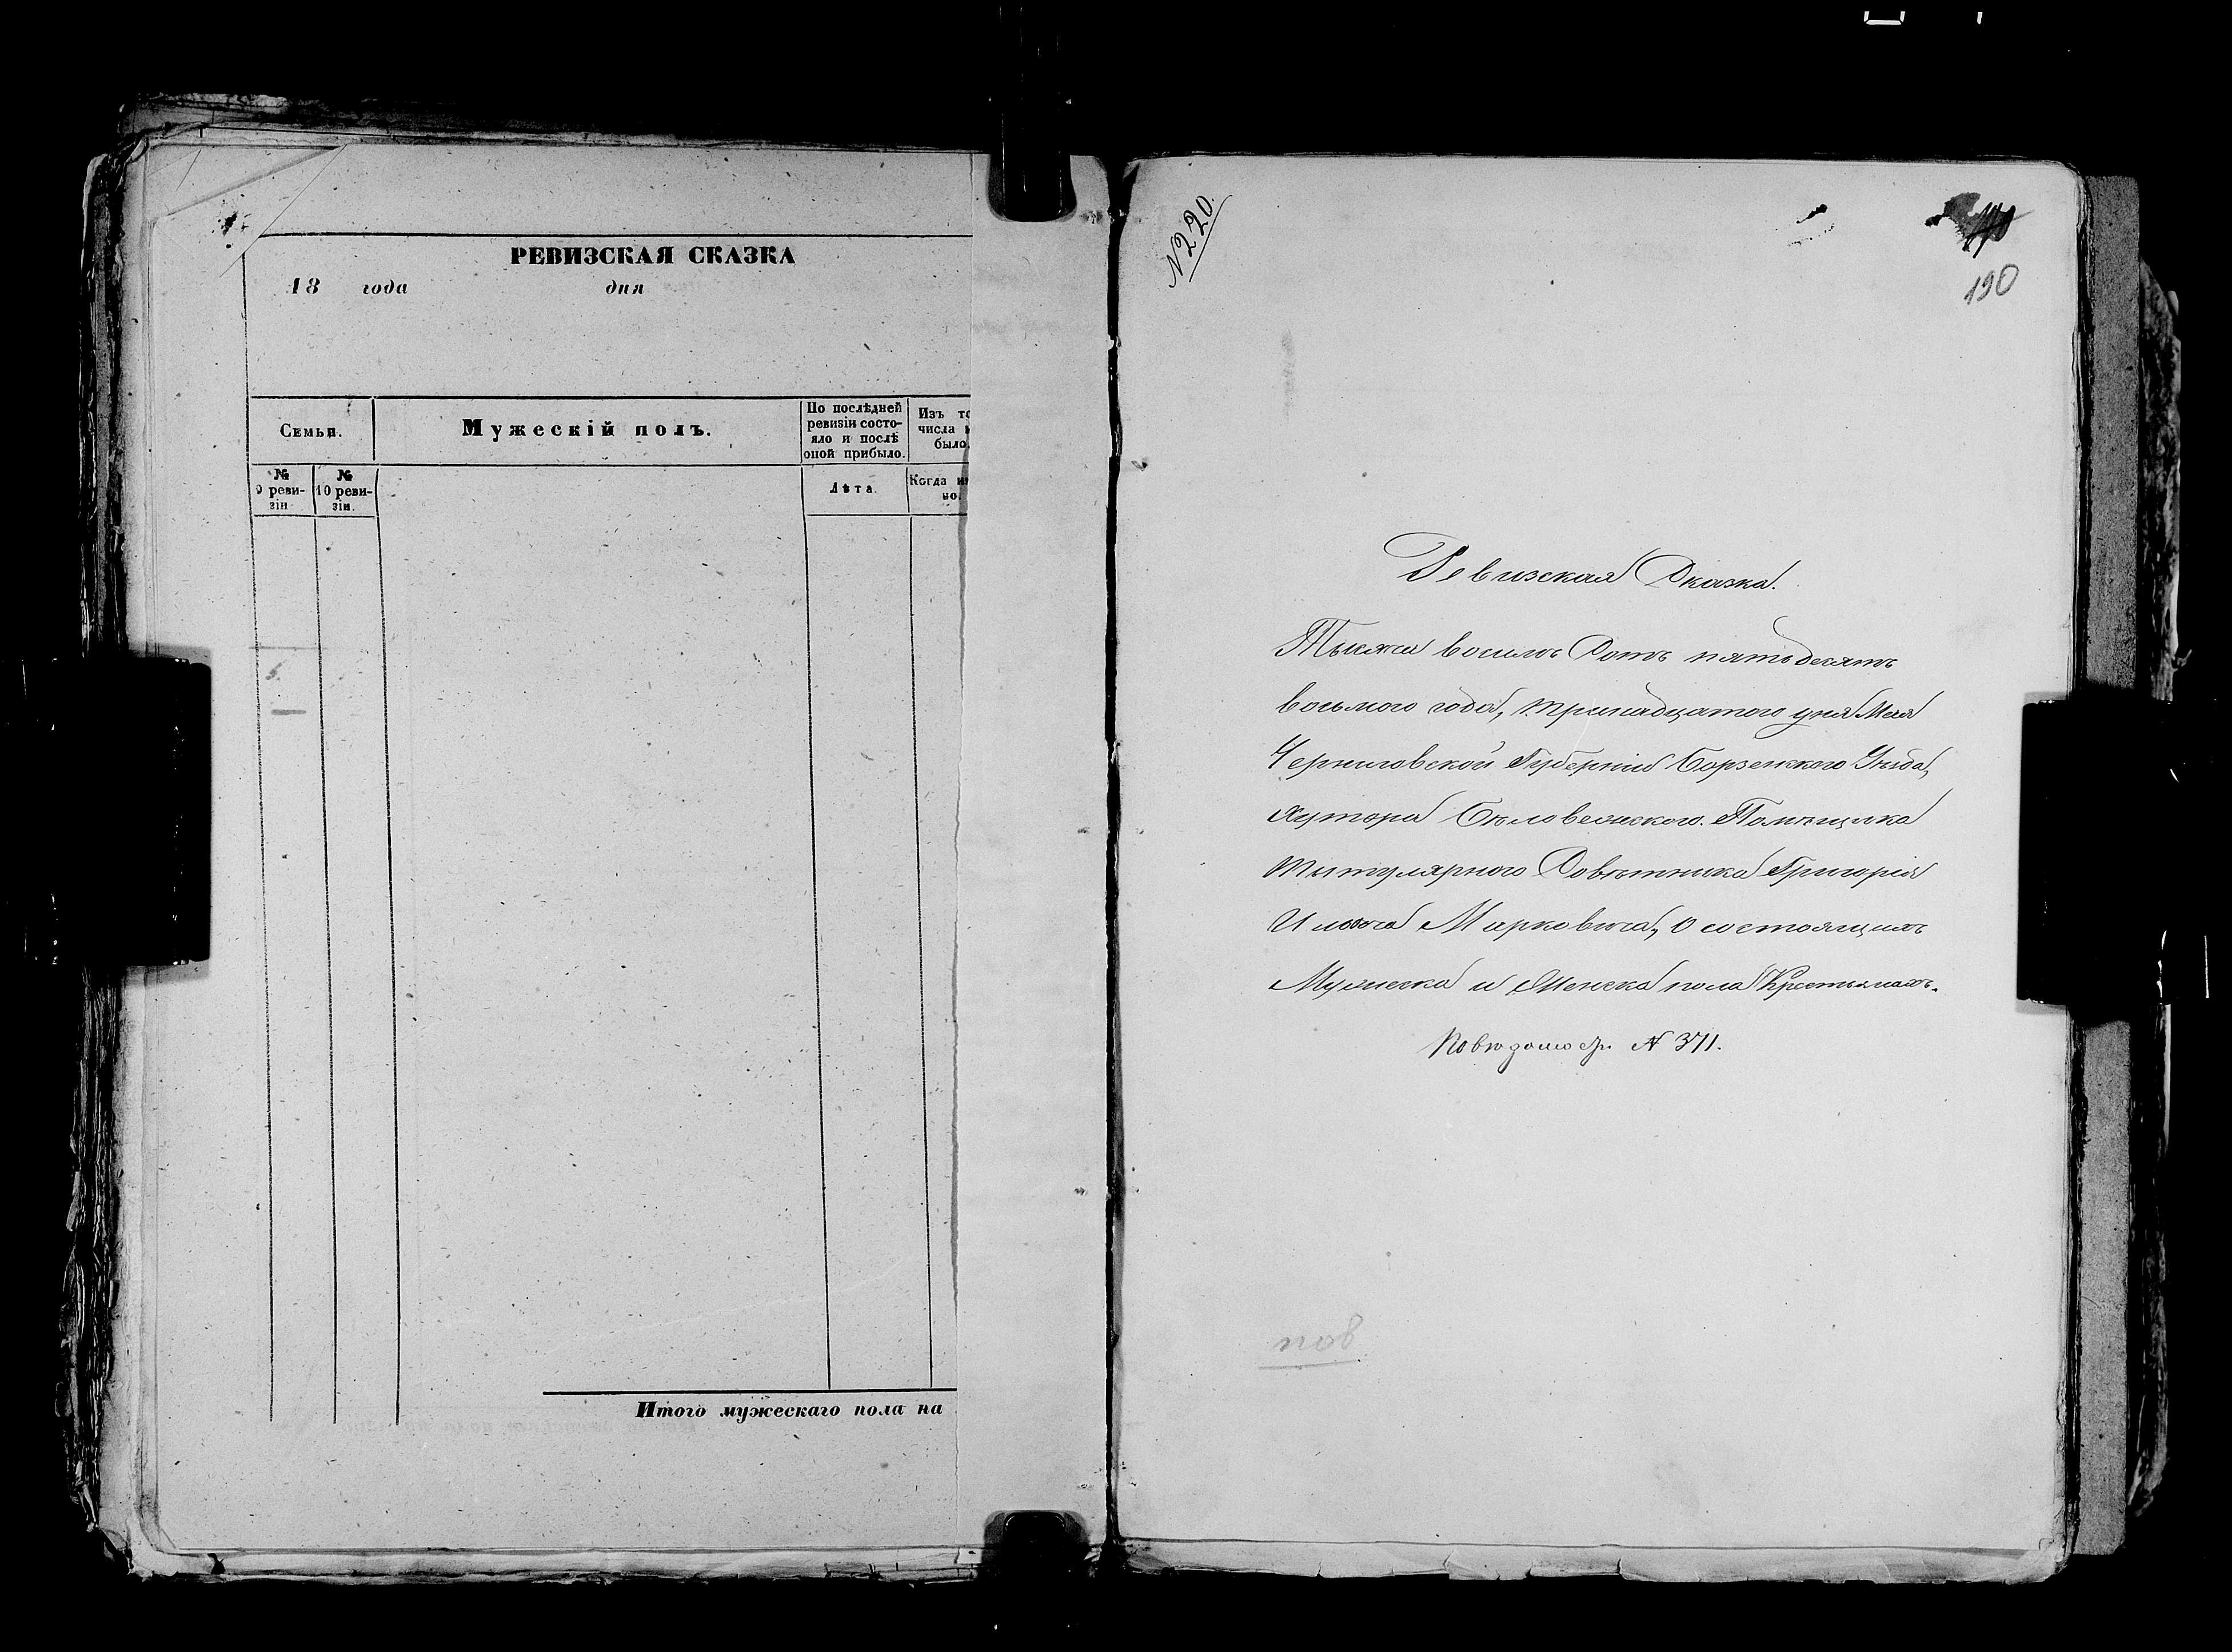 РЕВИЗСКАЯ СКАЗКА
18 года дня
Семьи.
Мужескій полъ.
По послѣдней
ревизіи состо-
яло и послѣ
оной прибыло.
Изъ то
числа
было
№
9 реви-
зіи
№
10 реви-
зіи.
Лѣта.
Когда им
но.
Итого мужескаго пола на
№ 220.
190
Ревизская Сказка.
Тысяча восемь Сотъ пятьдесятъ
восьмого года, тринадцатого дня Мая
Черниговской Губерніи Борзенского Уѣзда,
хутора Бѣловежского. Помѣщика
титулярного Совѣтника Григорія
Марковича, о состоящихъ
Мужеска и Женска пола Крестьянахъ.
№ 371.
пов